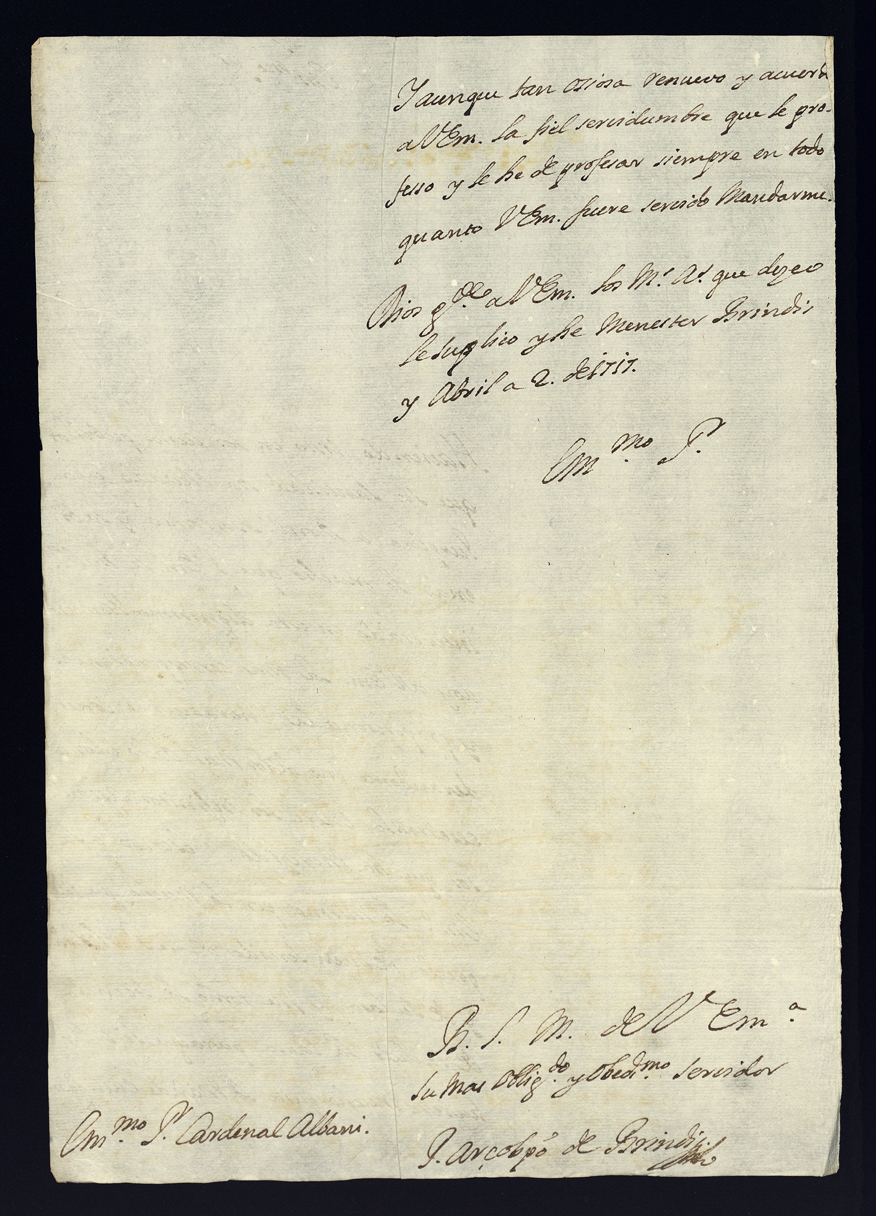 Y aunque tan osiosa renuevo y acuerdo
a V Em. la fiel servidumbre que le pro-
fesso y le he de profesar siempre en todo
quanto V Em. fuere servido Mandarme.
Dios g.de a V Em. los M.s A.s que dezeo
le suplico y he Menester Brindis
y Abril a 2. de 1717.
Em.mo S.r
B. S. M. de V Em.a
su mas Oblig.do y Obed.mo servidor
Em.mo S.r Cardenal Albani.
P. Arçobpõ de Brindis